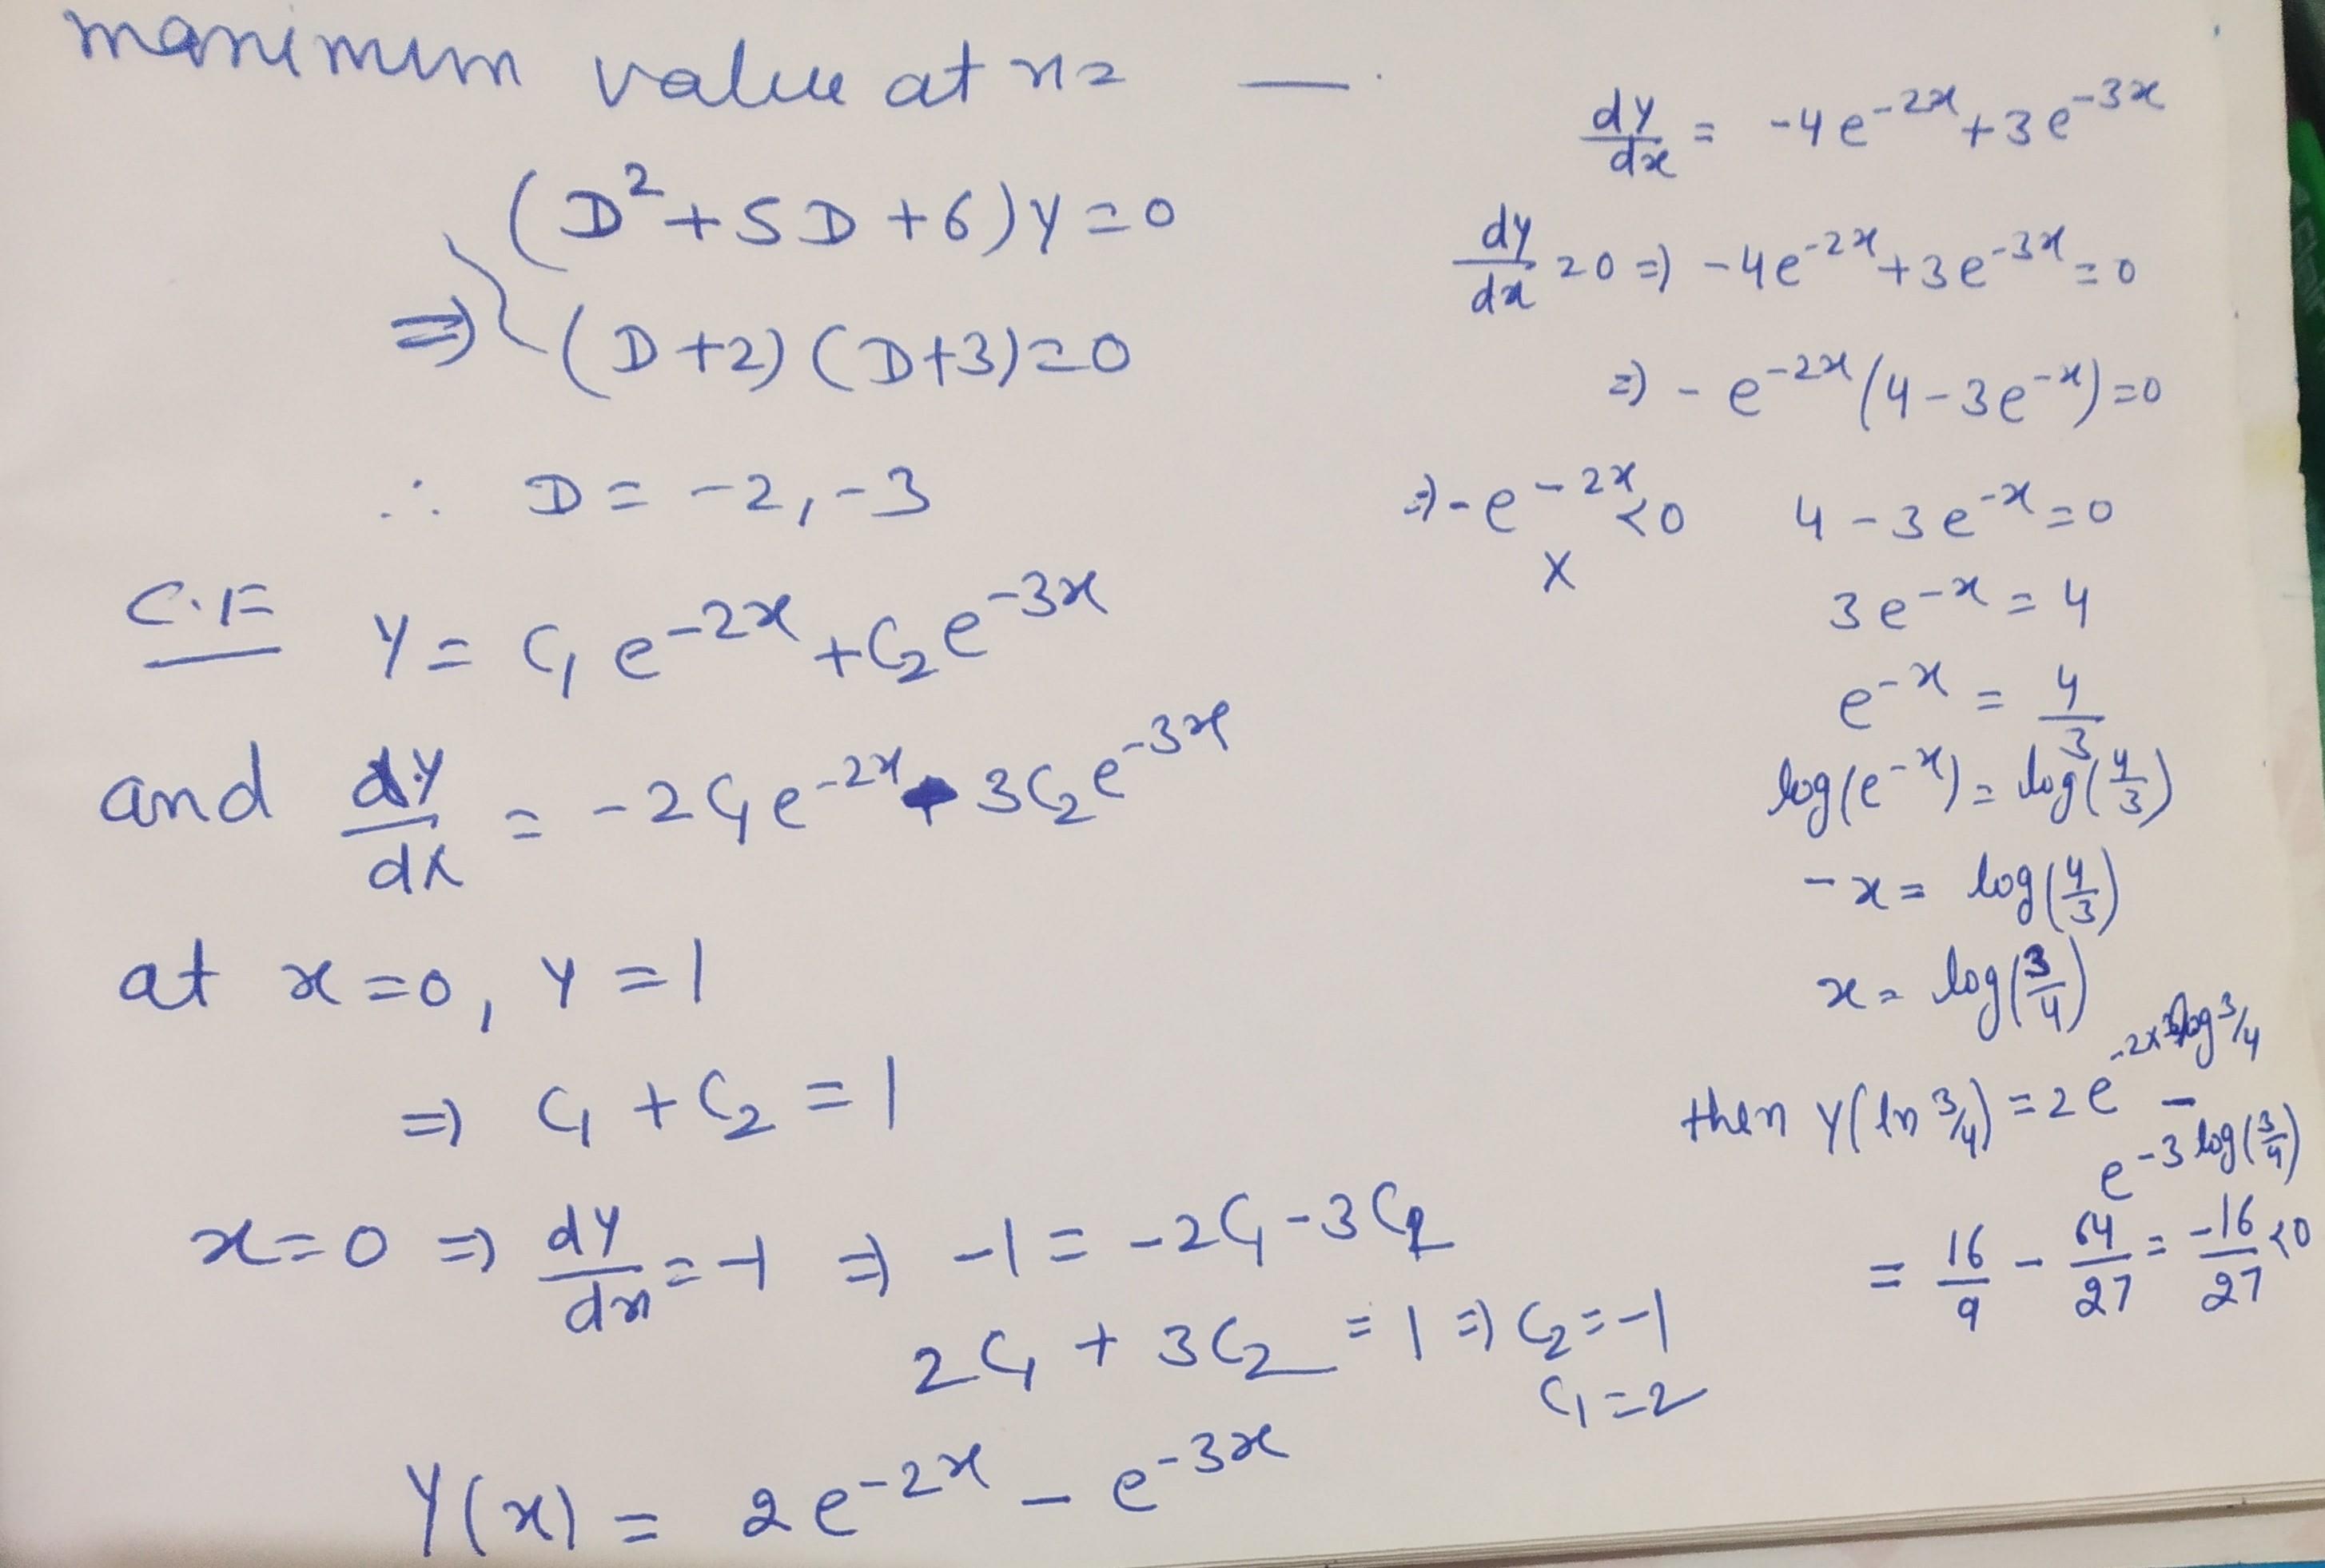 maximum value at x = —.
(D² + 5D + 6) y = 0
⇒ (D + 2) (D + 3) = 0
∴ D = -2, -3
C.F y = C₁ e^{-2x} + C₂ e^{-3x}
and dy/dx = -2C₁e^{-2x} - 3C₂e^{-3x}
at x = 0, y = 1
⇒ C₁ + C₂ = 1
x = 0 ⇒ dy/dx = -1 ⇒ -1 = -2C₁ - 3C₂
2C₁ + 3C₂ = 1 ⇒ C₂ = -1
C₁ = 2
y(x) = 2e^{-2x} - e^{-3x}
dy/dx = -4e^{-2x} + 3e^{-3x}
dy/dx = 0 ⇒ -4e^{-2x} + 3e^{-3x} = 0
⇒ -e^{-2x} (4 - 3e^{-x}) = 0
⇒ -e^{-2x} < 0 4 - 3e^{-x} = 0
X
3e^{-x} = 4
e^{-x} = 4/3
log(e^{-x}) = log(4/3)
-x = log(4/3)
x = log(3/4)
then y(ln 3/4) = 2e^{-2x log 3/4} -
e^{-3 log(3/4)}
= 16/9 - 64/27 = -16/27 < 0